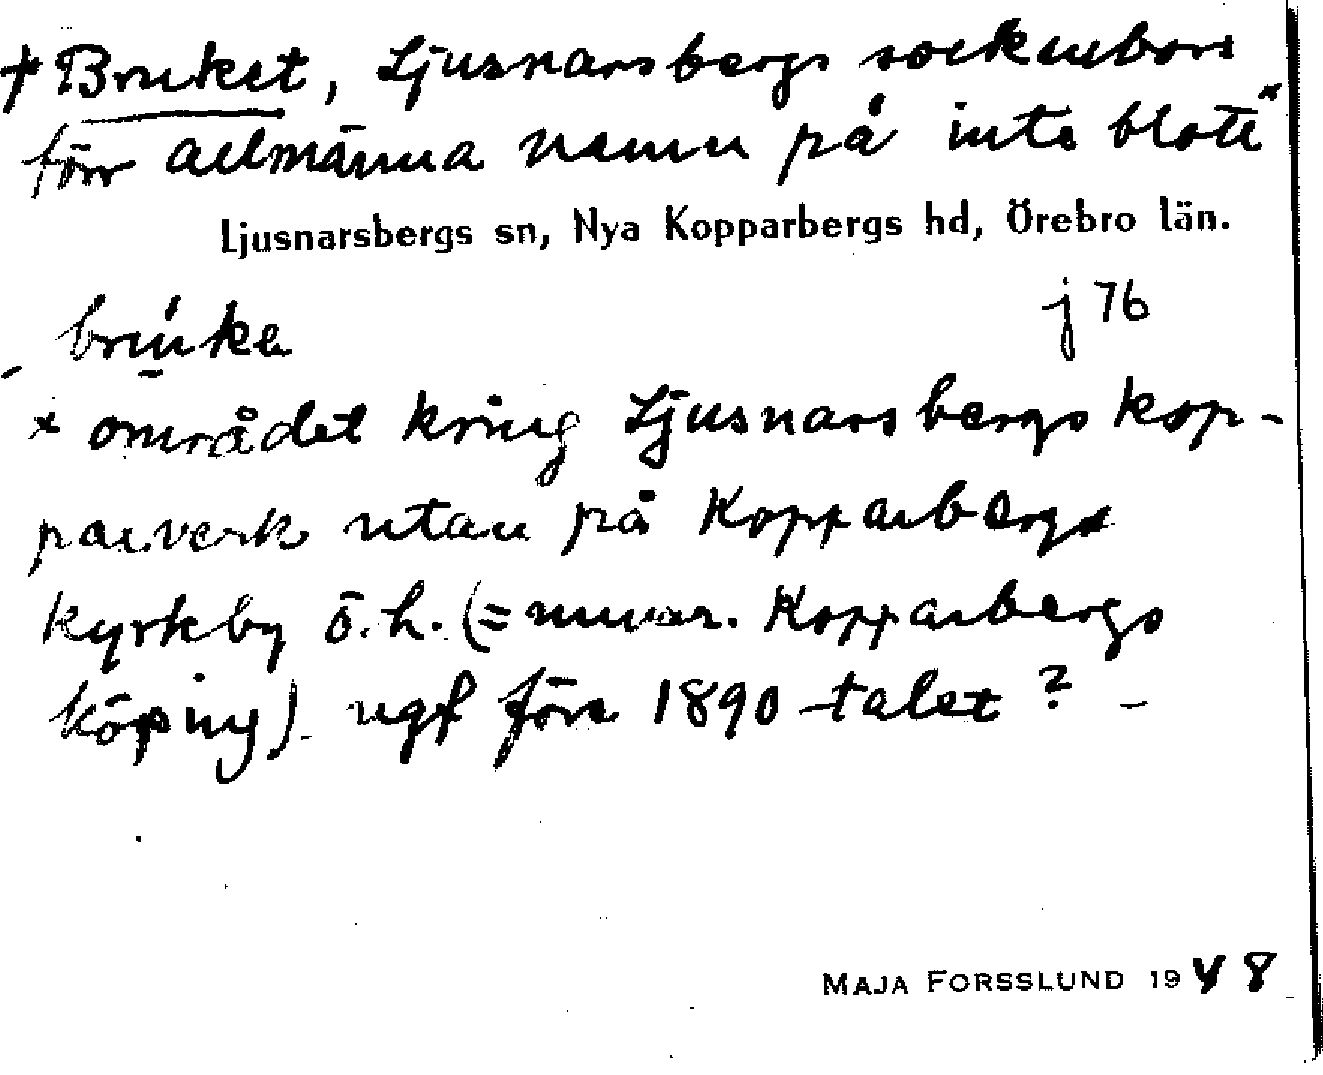 † Bruket, Ljusnarsbergs sockenbors
förr allmänna namn på inte blott *
Ljusnarsbergs sn, Nya Kopparbergs hd, Örebro län.
j 76
* området kring Ljusnarsbergs kop-
parverk utan på Kopparbergs
kyrkby ö.h. (= nuvar. Kopparbergs
köping) ngt före 1890-talet? -
MAJA FORSSLUND 1948